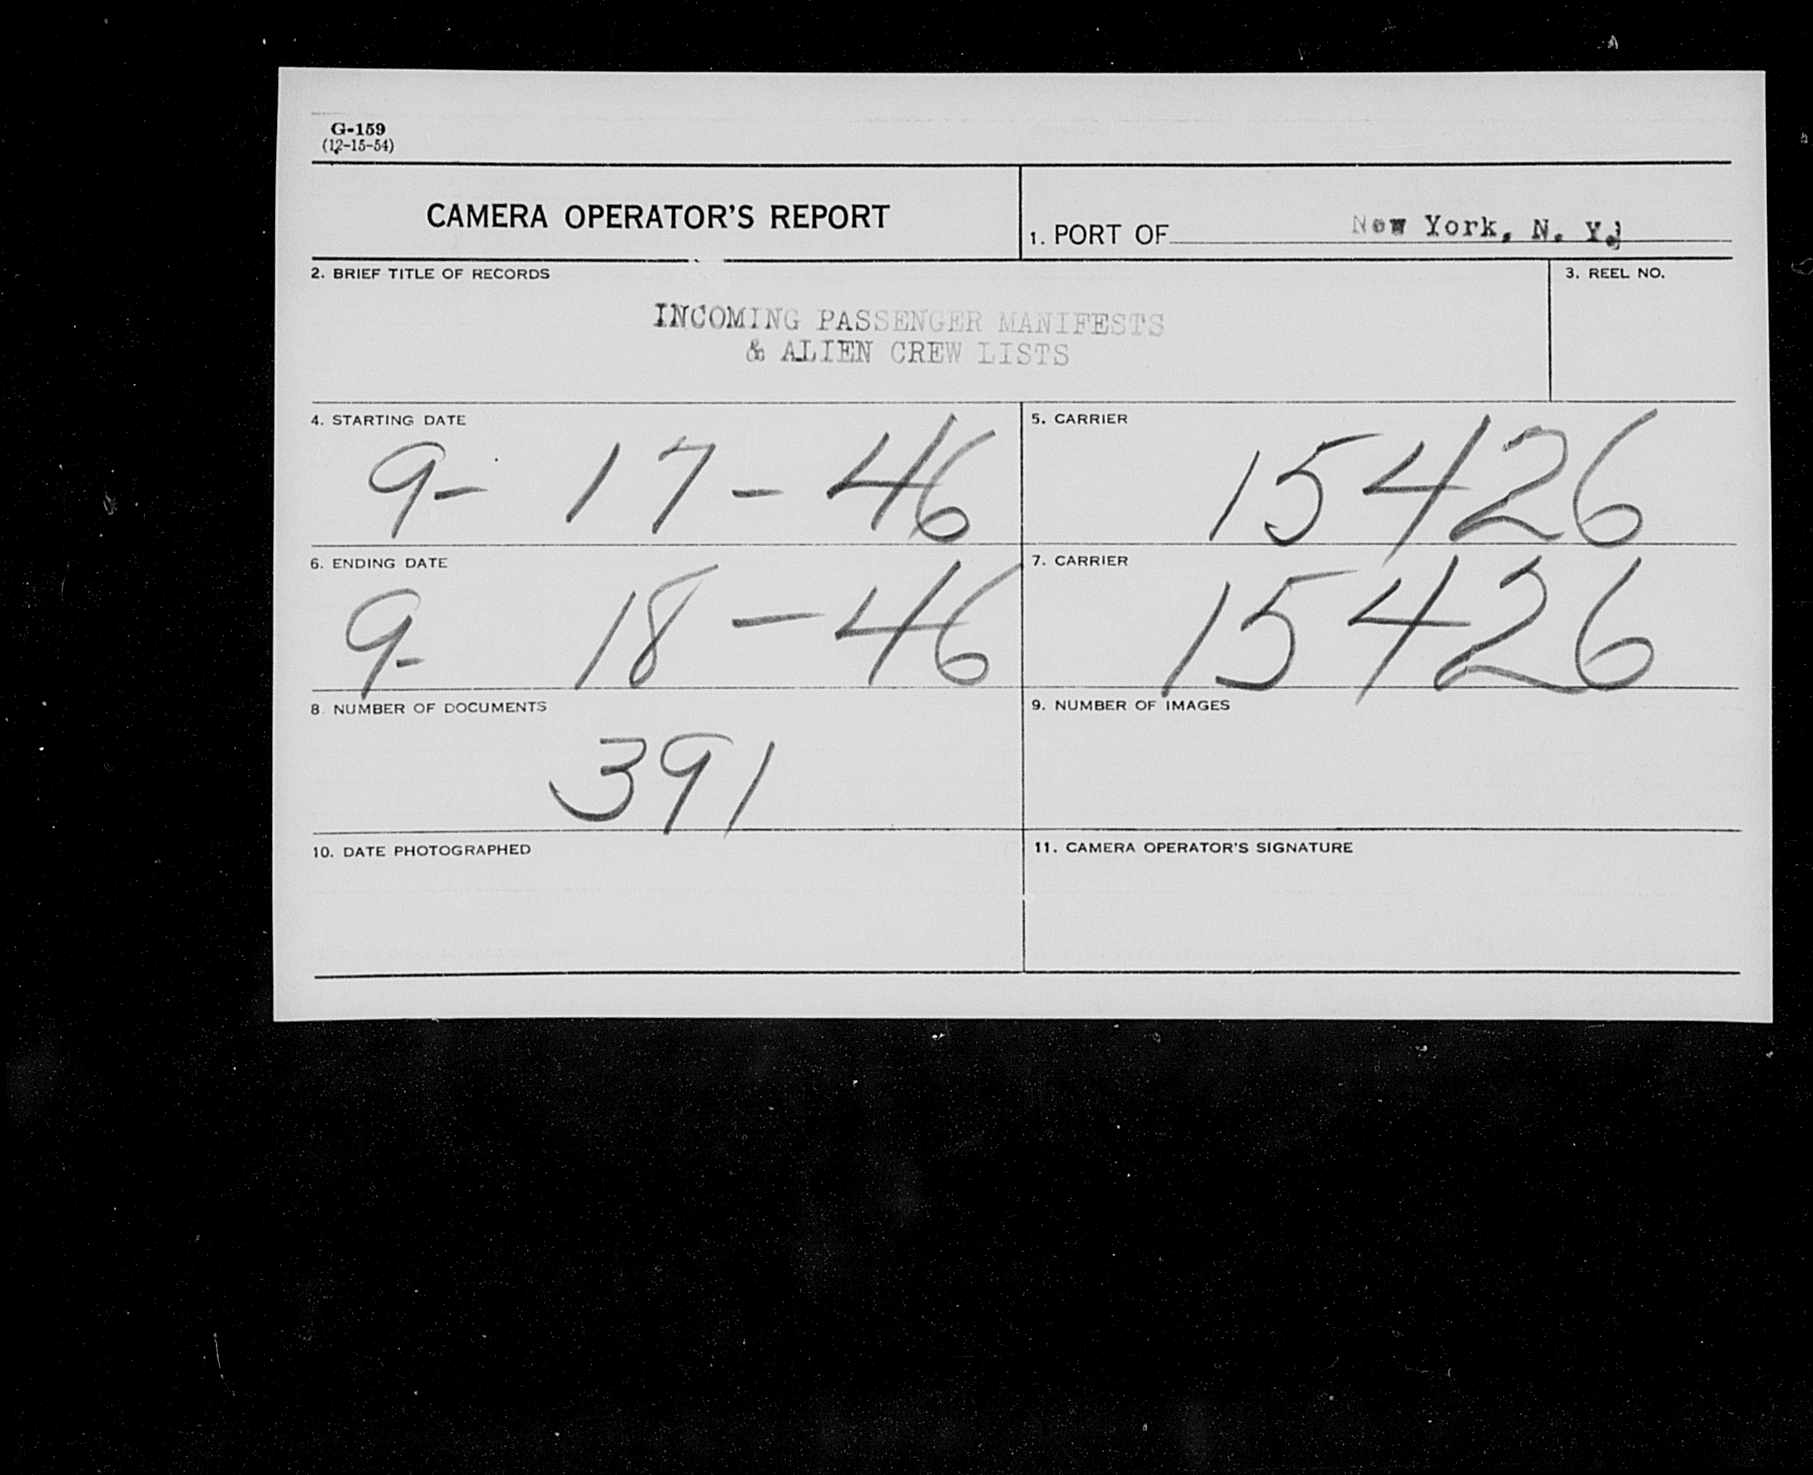 G-159
(12-15-54)
CAMERA OPERATOR'S REPORT
1. PORT OF New York, N. Y.
2. BRIEF TITLE OF RECORDS
INCOMING PASSENGER MANIFESTS
& ALIEN CREW LISTS
3. REEL NO.
4. STARTING DATE
9- 17-46
5. CARRIER
15426
6. ENDING DATE
9- 18-46
7. CARRIER
15426
8. NUMBER OF DOCUMENTS
391
9. NUMBER OF IMAGES
10. DATE PHOTOGRAPHED
11. CAMERA OPERATOR'S SIGNATURE